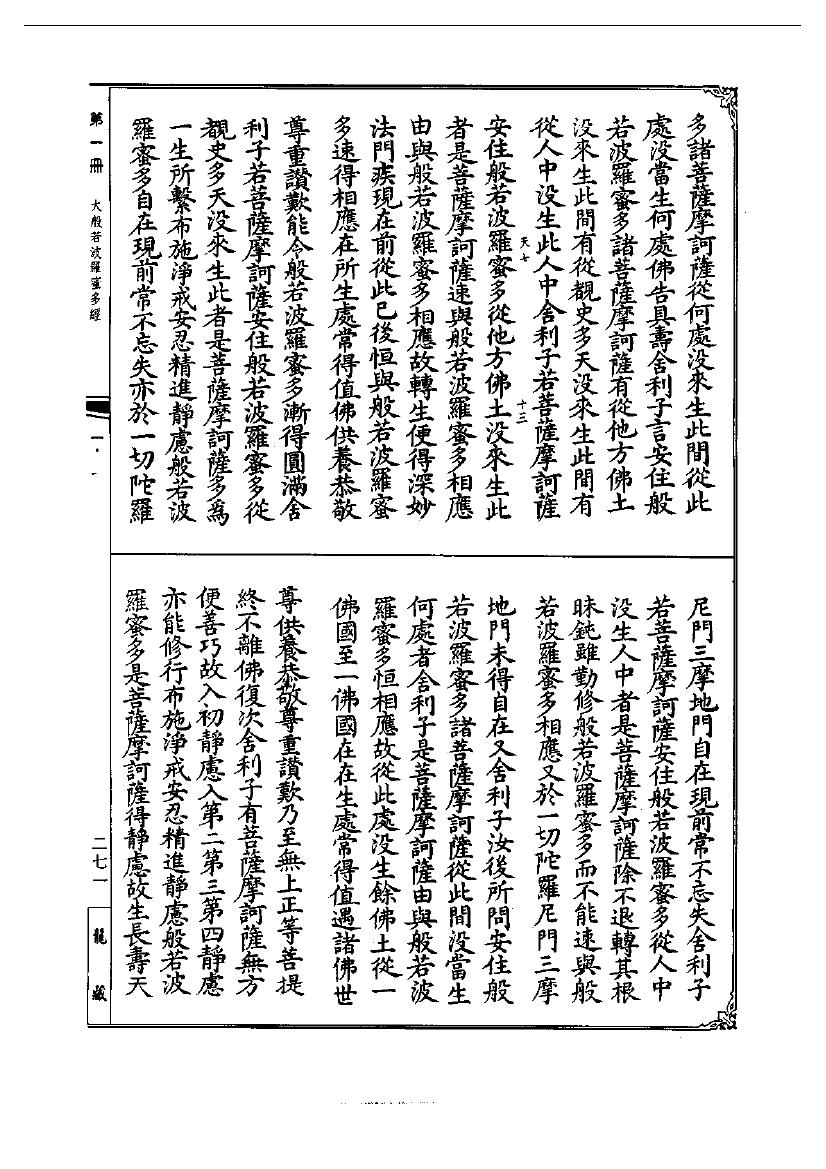 多諸菩薩摩訶薩從何處没來生此間從此
處没當生何處佛告具壽舍利子言安住般
若波羅蜜多諸菩薩摩訶薩有從他方佛土
没來生此間有從覩史多天没來生此間有
從人中没生此人中舍利子若菩薩摩訶薩
天七
十三
安住般若波羅蜜多從他方佛土没來生此
者是菩薩摩訶薩速與般若波羅蜜多相應
由與般若波羅蜜多相應故轉生便得深妙
法門疾現在前從此已後恒與般若波羅蜜
多速得相應在所生處常得值佛供養恭敬
尊重讚歎能令般若波羅蜜多漸得圓滿舍
利子若菩薩摩訶薩安住般若波羅蜜多從
覩史多天没來生此者是菩薩摩訶薩多為
一生所繫布施淨戒安忍精進靜慮般若波
羅蜜多自在現前常不忘失亦於一切陀羅
尼門三摩地門自在現前常不忘失舍利子
若菩薩摩訶薩安住般若波羅蜜多從人中
没生人中者是菩薩摩訶薩除不退轉其根
昧鈍雖勤修般若波羅蜜多而不能速與般
若波羅蜜多相應又於一切陀羅尼門三摩
地門未得自在又舍利子汝後所問安住般
若波羅蜜多諸菩薩摩訶薩從此間没當生
何處者舍利子是菩薩摩訶薩由與般若波
羅蜜多恒相應故從此處没生餘佛土從一
佛國至一佛國在在生處常得值遇諸佛世
尊供養恭敬尊重讚歎乃至無上正等菩提
終不離佛復次舍利子有菩薩摩訶薩無方
便善巧故入初靜慮入第二第三第四靜慮
亦能修行布施淨戒安忍精進靜慮般若波
羅蜜多是菩薩摩訶薩得靜慮故生長壽天
第一冊 大般若波羅蜜多經
二七一
龍藏